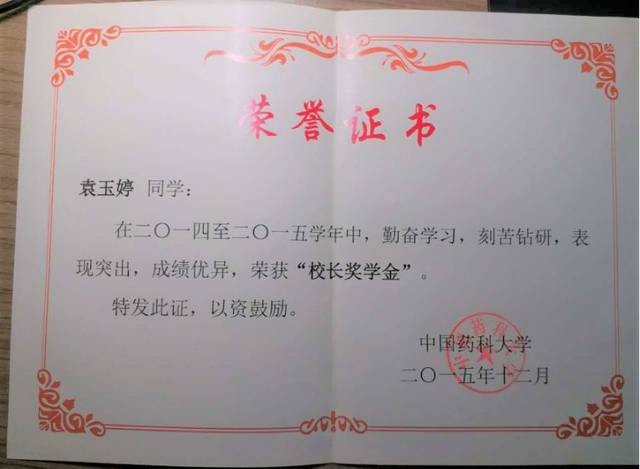 荣誉证书
袁玉婷 同学：
在二〇一四至二〇一五学年中，勤奋学习，刻苦钻研，表
现突出，成绩优异，荣获“校长奖学金”。
特发此证，以资鼓励。
中国药科大学
二〇一五年十二月